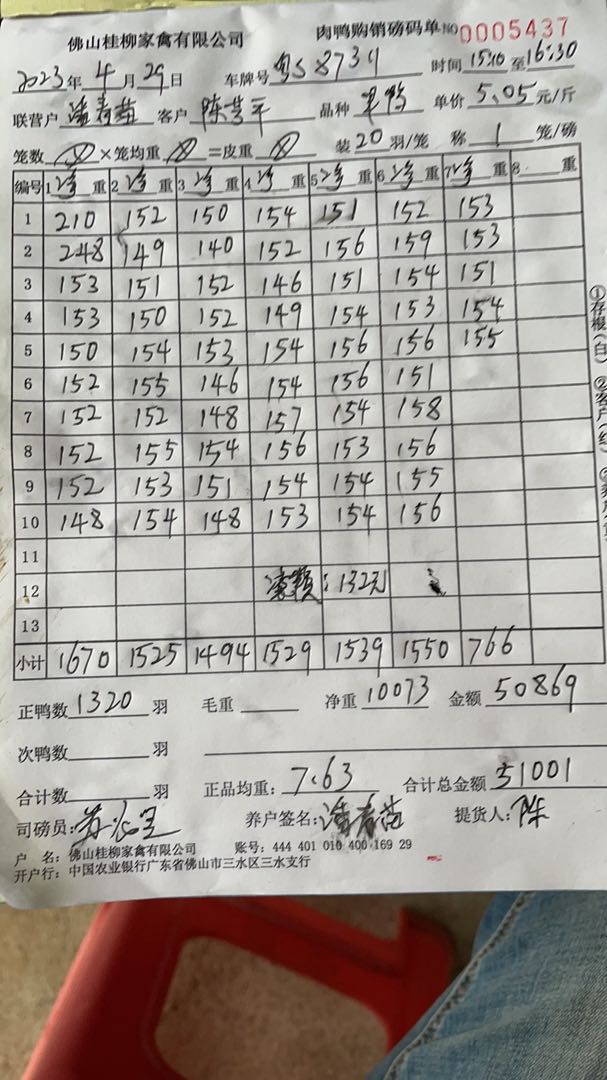 佛山桂柳家禽有限公司 肉鸭购销磅码单 NO 0005437
2023年 4月 29日 车牌号 粤S 8739 时间 15:10 至 16:30
联营户 客户 陈 品种 单价 5.05 元/斤
笼数 × 笼均重 = 皮重 装 20 羽/笼 称 1 笼/磅
编号 1 净 重 2 净 重 3 净 重 4 净 重 5 净 重 6 净 重 7 净 重 8 重
1 210 152 150 154 151 152 153
2 248 149 140 152 156 159 153
3 153 151 152 146 151 154 151
4 153 150 152 149 154 153 154
5 150 154 153 154 156 156 155
6 152 155 146 154 156 151
7 152 152 148 157 154 158
8 152 155 154 156 153 156
9 152 153 151 154 154 155
10 148 154 148 153 154 156
11
12 : 132元
13
小计 1670 1525 1494 1529 1539 1550 766
正鸭数 1320 羽 毛重 净重 10073 金额 50869
次鸭数 羽
合计数 羽 正品均重: 7.63 合计总金额 51001
司磅员: 养户签名: 提货人: 陈
户 名: 佛山桂柳家禽有限公司 账号: 444 401 010 400 169 29
开户行: 中国农业银行广东省佛山市三水区三水支行
①存根(白)
②客户(红)